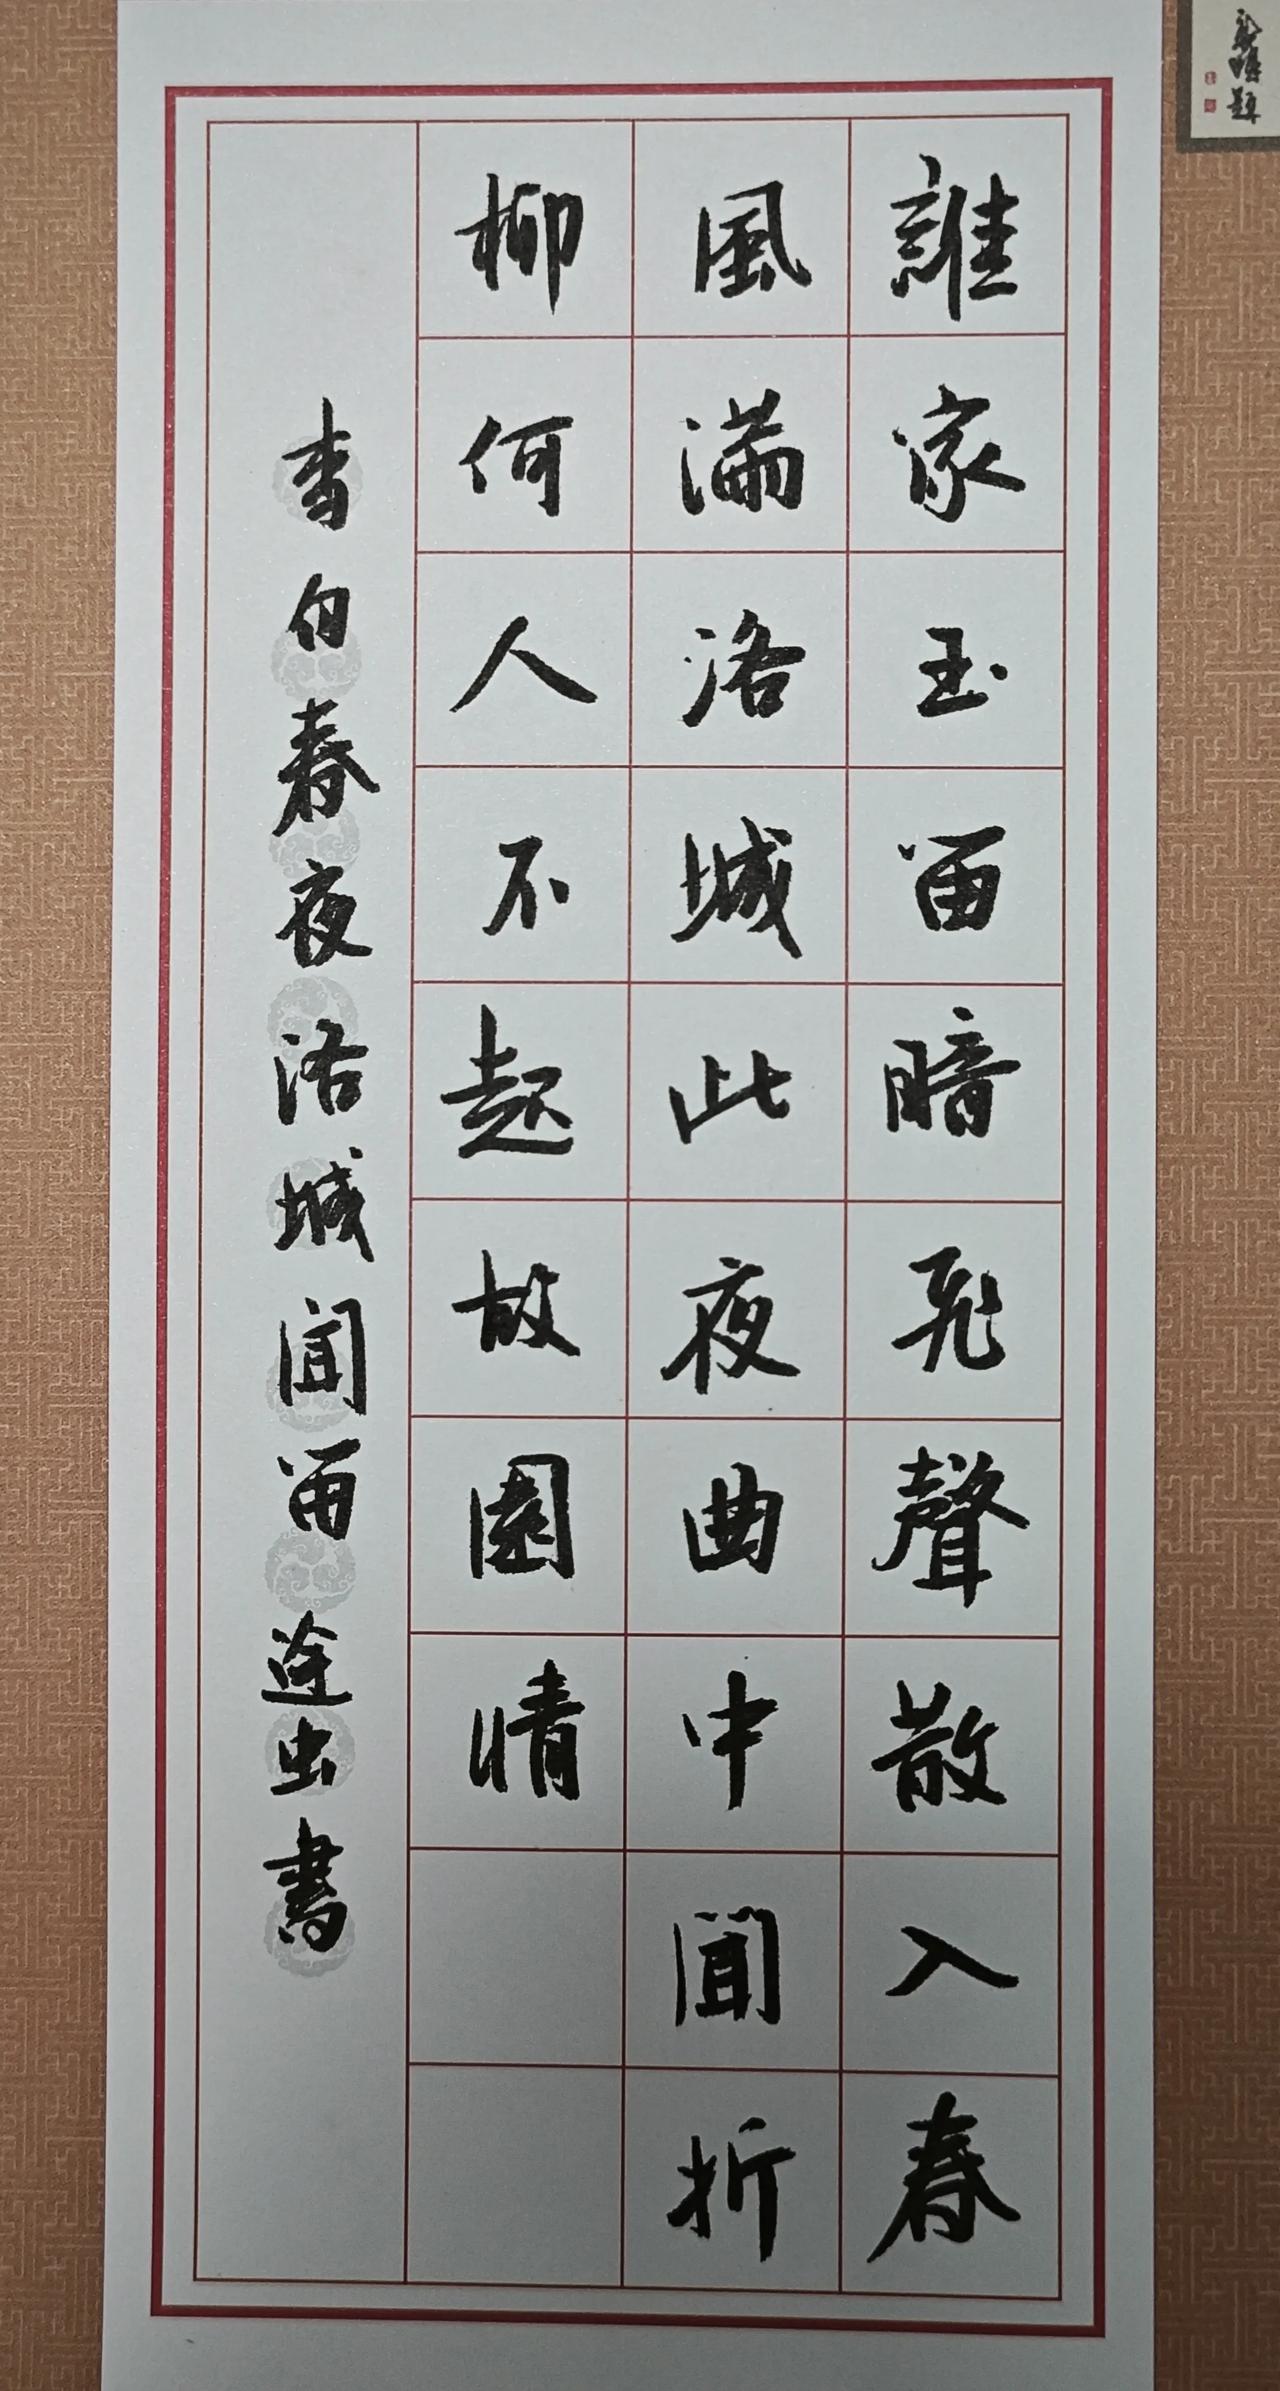 誰家玉笛暗飛聲散入春
風滿洛城此夜曲中聞折
柳何人不起故園情
李白春夜洛城聞笛 虫書
題